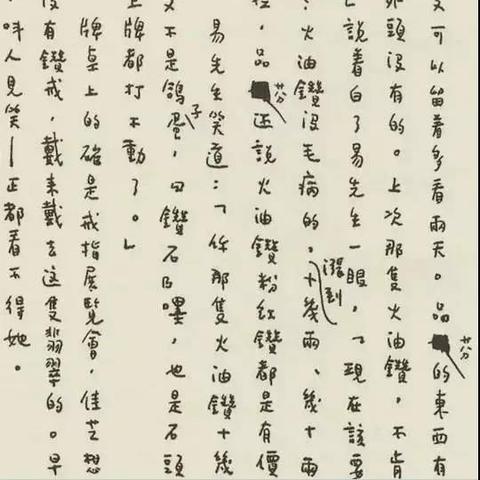 又可以留着多看兩天。品芬的東西有
外頭沒有的。上次那隻火油鑽，不肯
」說着白了易先生一眼，「現在該要
火油鑽沒毛病的，漲到十幾兩、幾十兩
，品芬還說火油鑽粉紅鑽都是有價
易先生笑道：「你那隻火油鑽十幾
又不是鴿子蛋，『鑽石』嘿，也是石頭
上牌都打不動了。」
牌桌上的確是戒指展覽會，佳芝想
沒有鑽戒，戴來戴去這隻翡翠的。早
，叫人見笑—正都看不得她。